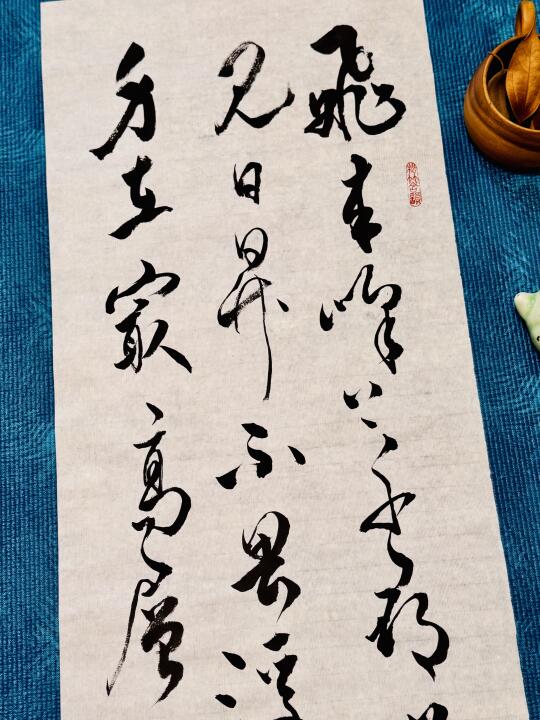 飛來峰上千尋塔
見日昇不畏浮
身在最高層